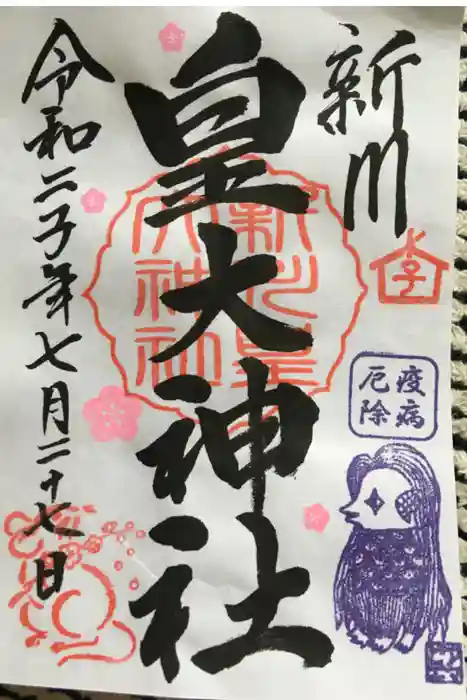 新川
皇大神社
令和二子年七月二十七日
疫病
厄除
子
新川皇大神社